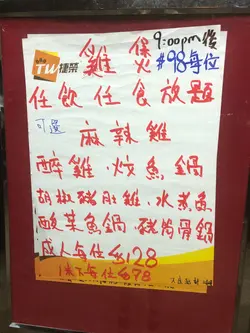 TW 捷榮
雞煲
9:00pm後
#98每位
任飲任食放題
可選
麻辣雞
醉雞·炆魚鍋
胡椒豬肚雞·水煮魚
酸菜魚鍋·豬骨鍋
成人每位$128
每位$78